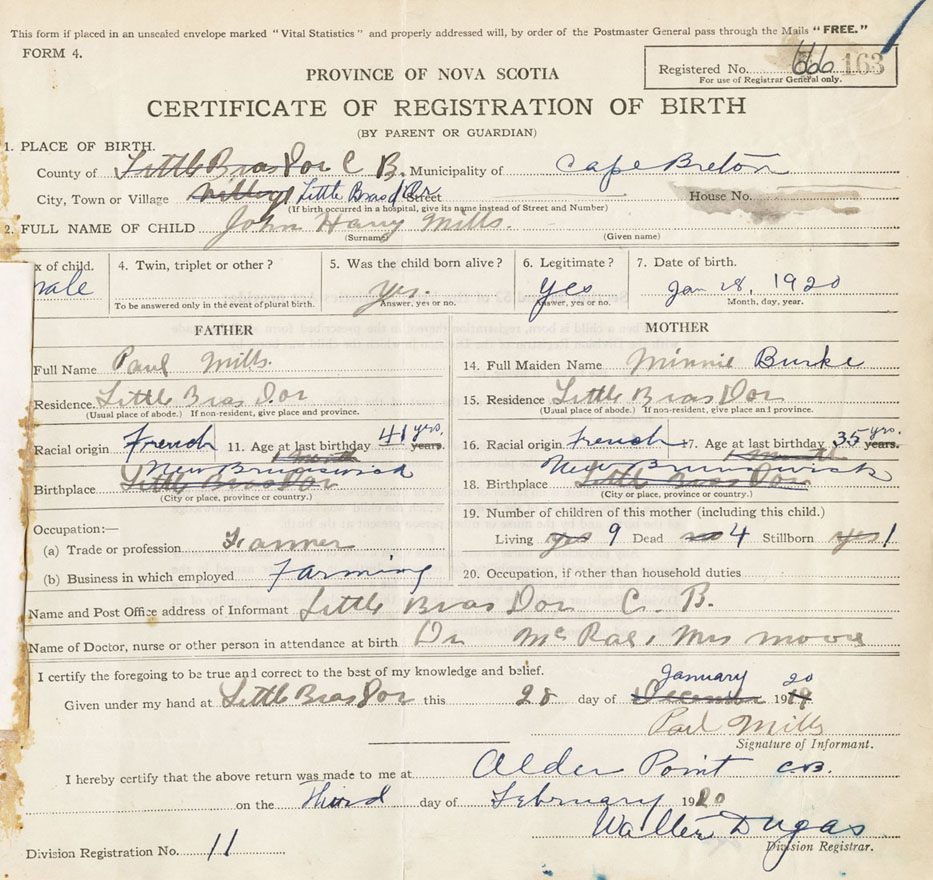 This form if placed in an unsealed envelope marked "Vital Statistics" and properly addressed will, by order of the Postmaster General pass through the Mails "FREE."
FORM 4.
Registered No. 666 163
For use of Registrar General only.
PROVINCE OF NOVA SCOTIA
CERTIFICATE OF REGISTRATION OF BIRTH
(BY PARENT OR GUARDIAN)
1. PLACE OF BIRTH.
County of Little Bras Dor C B. Municipality of Cape Breton
City, Town or Village Little Bras d'Or Street House No.
(If birth occurred in a hospital, give its name instead of Street and Number)
2. FULL NAME OF CHILD John Harry Mills.
(Surname) (Given name)
x of child. 4. Twin, triplet or other? 5. Was the child born alive? 6. Legitimate? 7. Date of birth.
male yes. yes Jan 18, 1920
To be answered only in the event of plural birth. Answer, yes or no. Answer, yes or no. Month, day, year.
FATHER MOTHER
Full Name Paul Mills. 14. Full Maiden Name Minnie Burke
Residence. Little Bras Dor 15. Residence Little Bras Dor
(Usual place of abode.) If non-resident, give place and province. (Usual place of abode.) If non-resident, give place and province.
Racial origin French 11. Age at last birthday 41 yrs. years. 16. Racial origin French 17. Age at last birthday 35 yrs. years.
1 month
New Brunswick New Brunswick
Birthplace Little Bras Dor 18. Birthplace Little Bras Dor
(City or place, province or country.) (City or place, province or country.)
19. Number of children of this mother (including this child.)
Occupation:— Living yes 9 Dead no 4 Stillborn yes 1
(a) Trade or profession Farmer
(b) Business in which employed Farming 20. Occupation, if other than household duties
Name and Post Office address of Informant Little Bras Dor C. B.
Name of Doctor, nurse or other person in attendance at birth Dr McRae, Mrs Moore
I certify the foregoing to be true and correct to the best of my knowledge and belief.
January 20
Given under my hand at Little Bras Dor this 28 day of December 1919
Paul Mills
Signature of Informant.
I hereby certify that the above return was made to me at Alder Point C.B.
on the Third day of February 1920
Walter Dugas
Division Registrar.
Division Registration No. 11